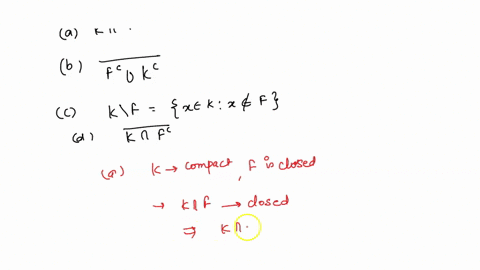 (a) K ∩ .
(b) \overline{F^c ∪ K^c}
(c) K\F = {x ∈ K : x ∉ F}
(d) \overline{K ∩ F^c}
(a) K → compact, F is closed
→ K ∩ F → closed
⇒ K ∩ .